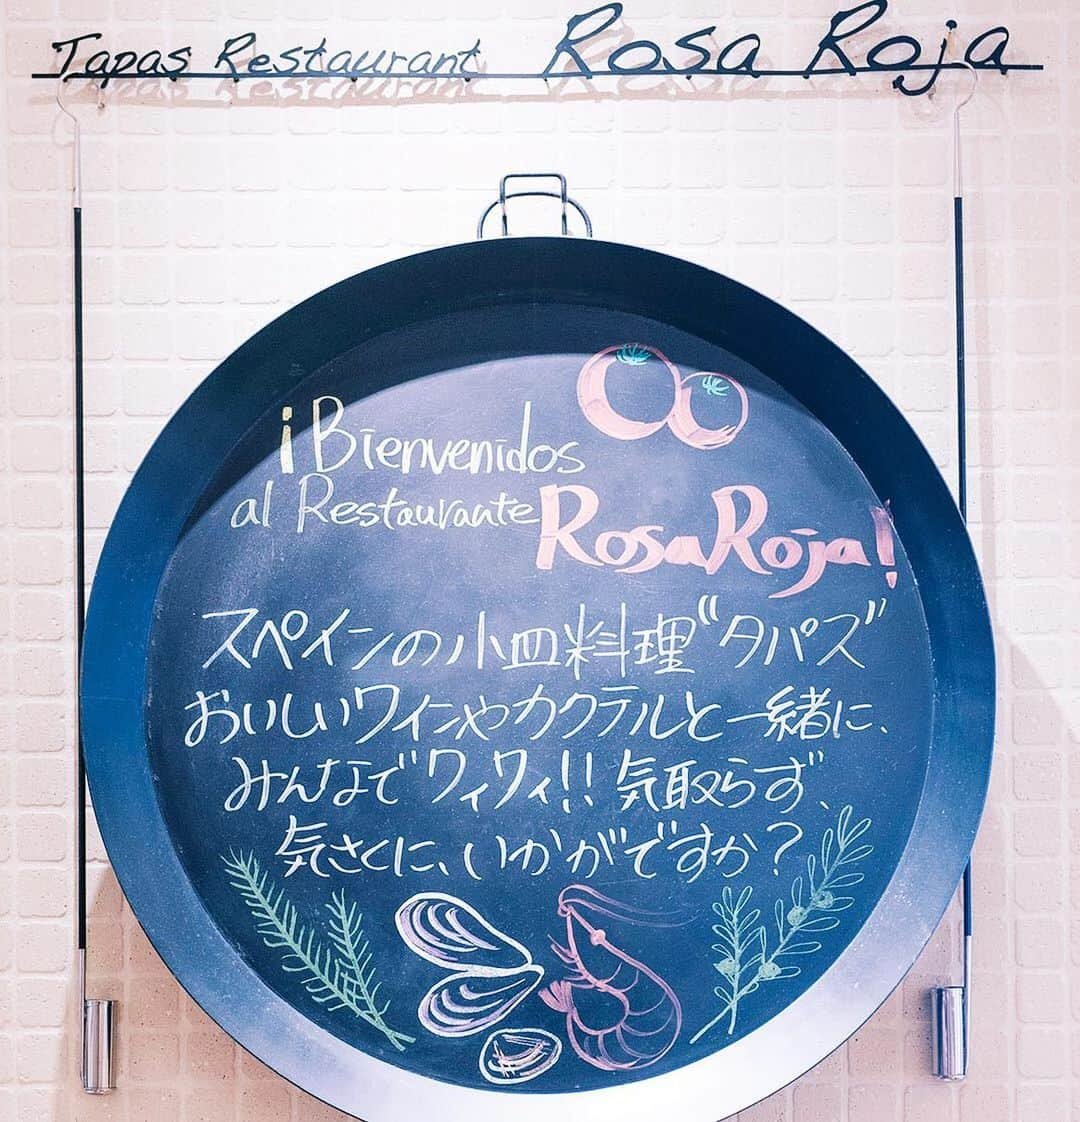 Tapas Restaurant Rosa Roja
¡Bienvenidos
al Restaurante RosaRoja!
スペインの小皿料理“タパス”
おいしいワインやカクテルと一緒に、
みんなでワイワイ!!気取らず、
気さくに、いかがですか?